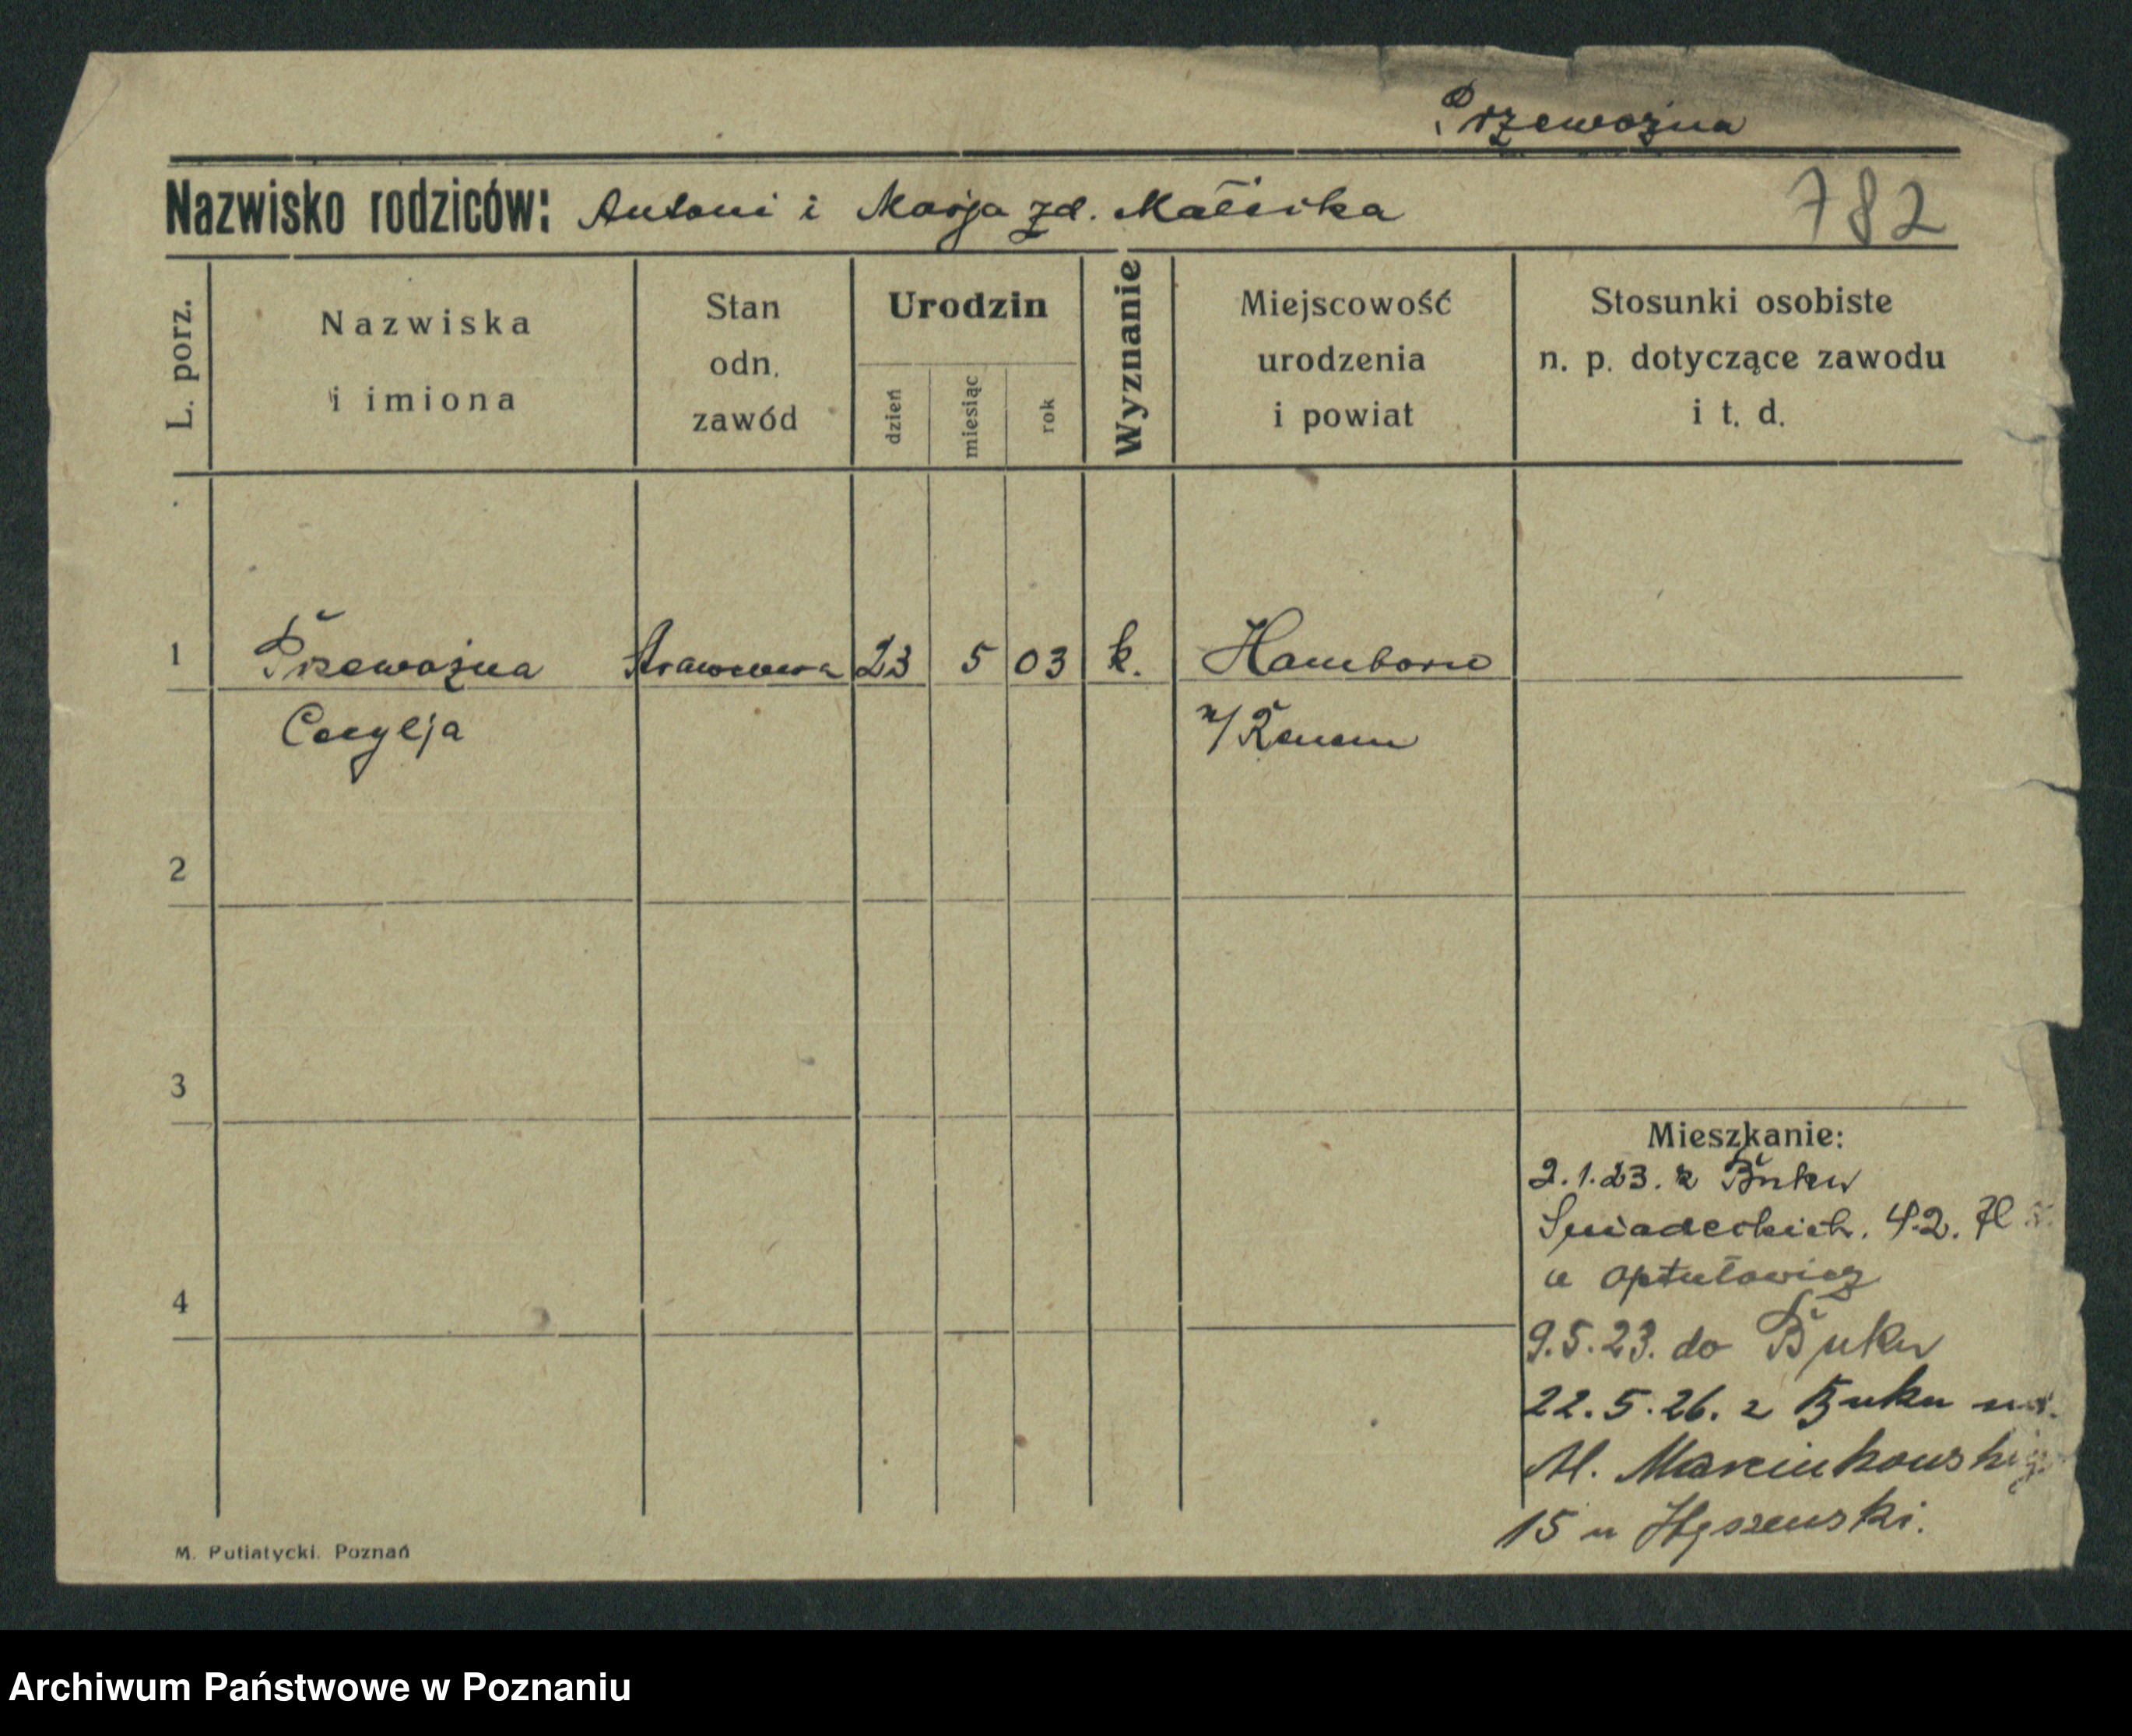 Przewoźna
Nazwisko rodziców: Antoni i Marja zd.
782
L. porz.
Nazwiska
i imiona
Stan
odn.
zawód
Urodzin
dzień
miesiąc
rok
Wyznanie
Miejscowość
urodzenia
i powiat
Stosunki osobiste
n. p. dotyczące zawodu
i t. d.
1 Przewoźna 23 5 03 k. Hamborn
Cecylja n/Renem
2
3
4
Mieszkanie:
2.1.23. z Buku
Śniadeckich. 42.
u Optułowicz
9.5.23. do Buku
22.5.26. z Buku
Al. Marcinkowskiego
15 u
M. Putiatycki. Poznań
Archiwum Państwowe w Poznaniu